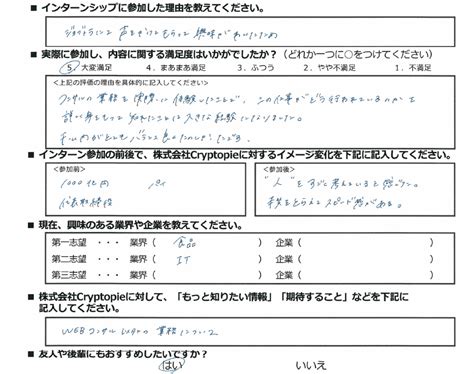 ■ インターンシップに参加した理由を教えてください。
ジョブトラにて声をかけてもらって興味がわいたため
■ 実際に参加し、内容に関する満足度はいかがでしたか?(どれか一つに○をつけてください)
5. 大変満足 4. まあまあ満足 3. ふつう 2. やや不満足 1. 不満足
<上記の評価の理由を具体的に記入してください>
コンサルの業務を実際に体験したことで、この仕事がどう行われているのかを
身をもって知れたことは大きな経験になりました。
バランス良く
■ インターン参加の前後で、株式会社Cryptopieに対するイメージ変化を下記に記入してください。
<参加前>
1000億円
代表取締役
<参加後>
"人"をすごく考えていると感じた。
スピード感がある。
■ 現在、興味のある業界や企業を教えてください。
第一志望 ・・・ 業界( 食品 ) 企業( )
第二志望 ・・・ 業界( IT ) 企業( )
第三志望 ・・・ 業界( ) 企業( )
■ 株式会社Cryptopieに対して、「もっと知りたい情報」「期待すること」などを下記に
記入してください。
WEBコンサル以外の業務について
■ 友人や後輩にもおすすめしたいですか?
はい いいえ